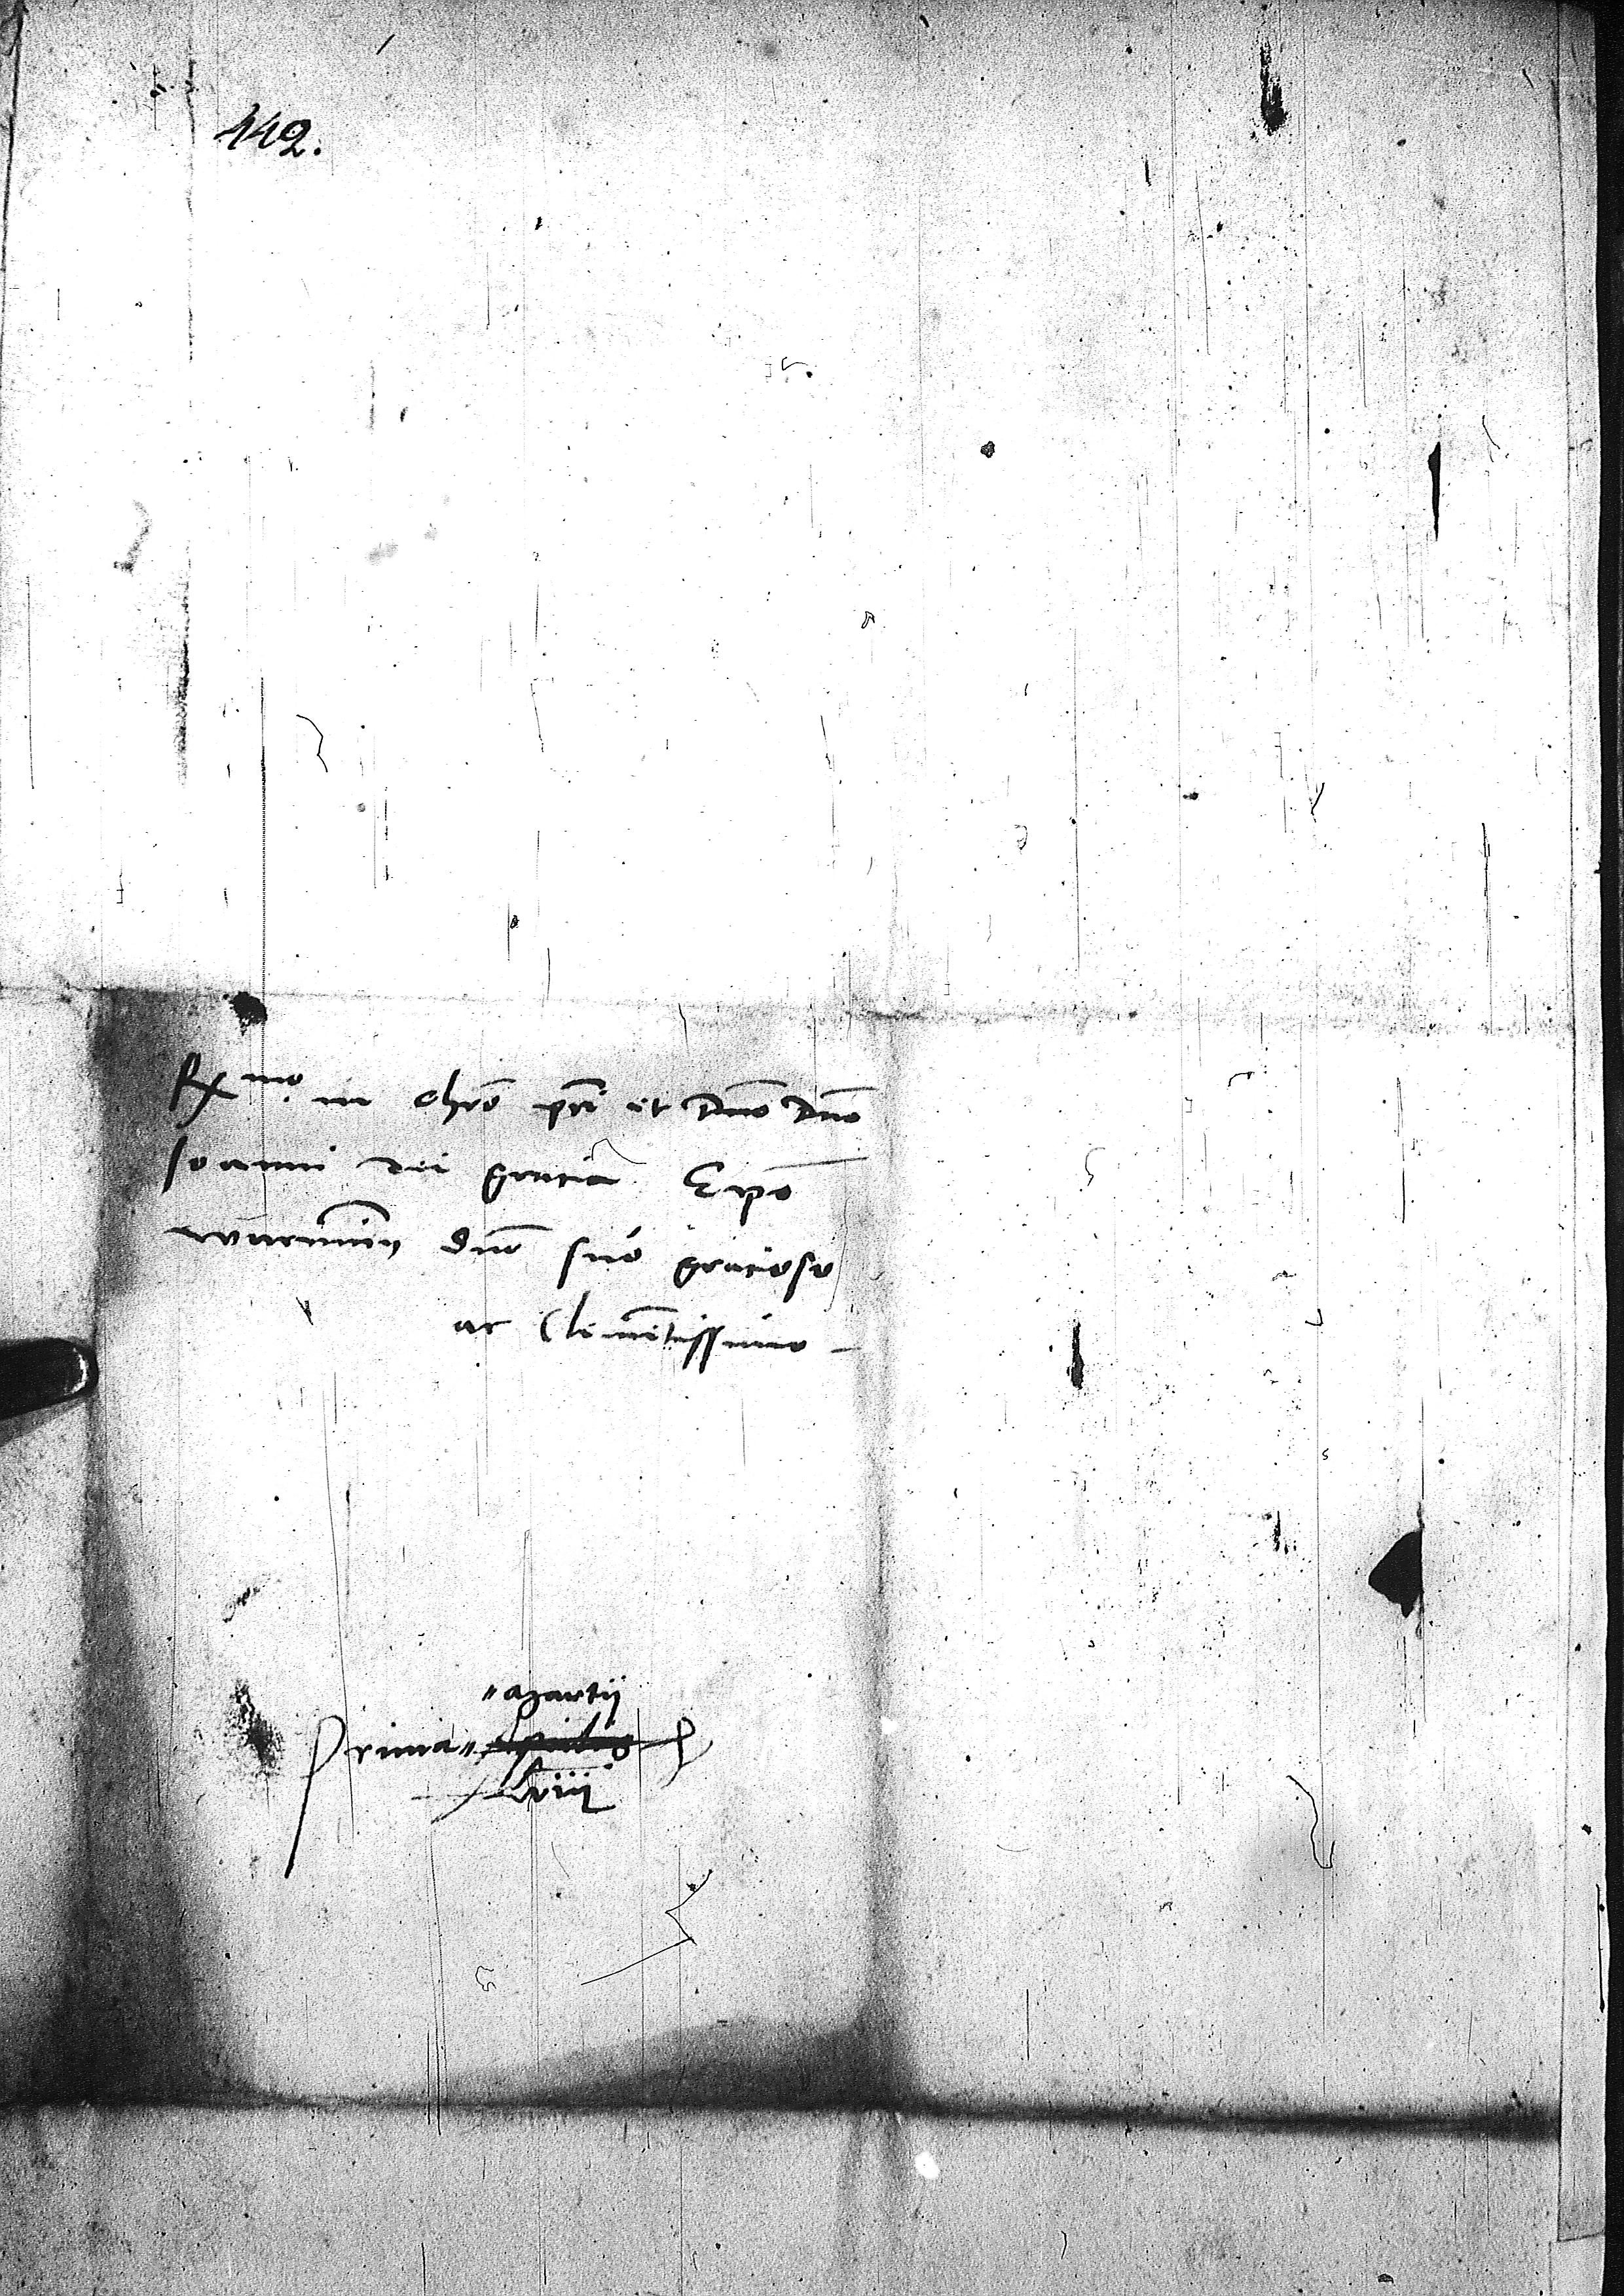 142.
Rx mo. in chro pri et Dno Dno
Joanni dei gracia Epo
warmien dno suo gracioso
ac Clementissimo
martij
Prima Aprilis
xlviij